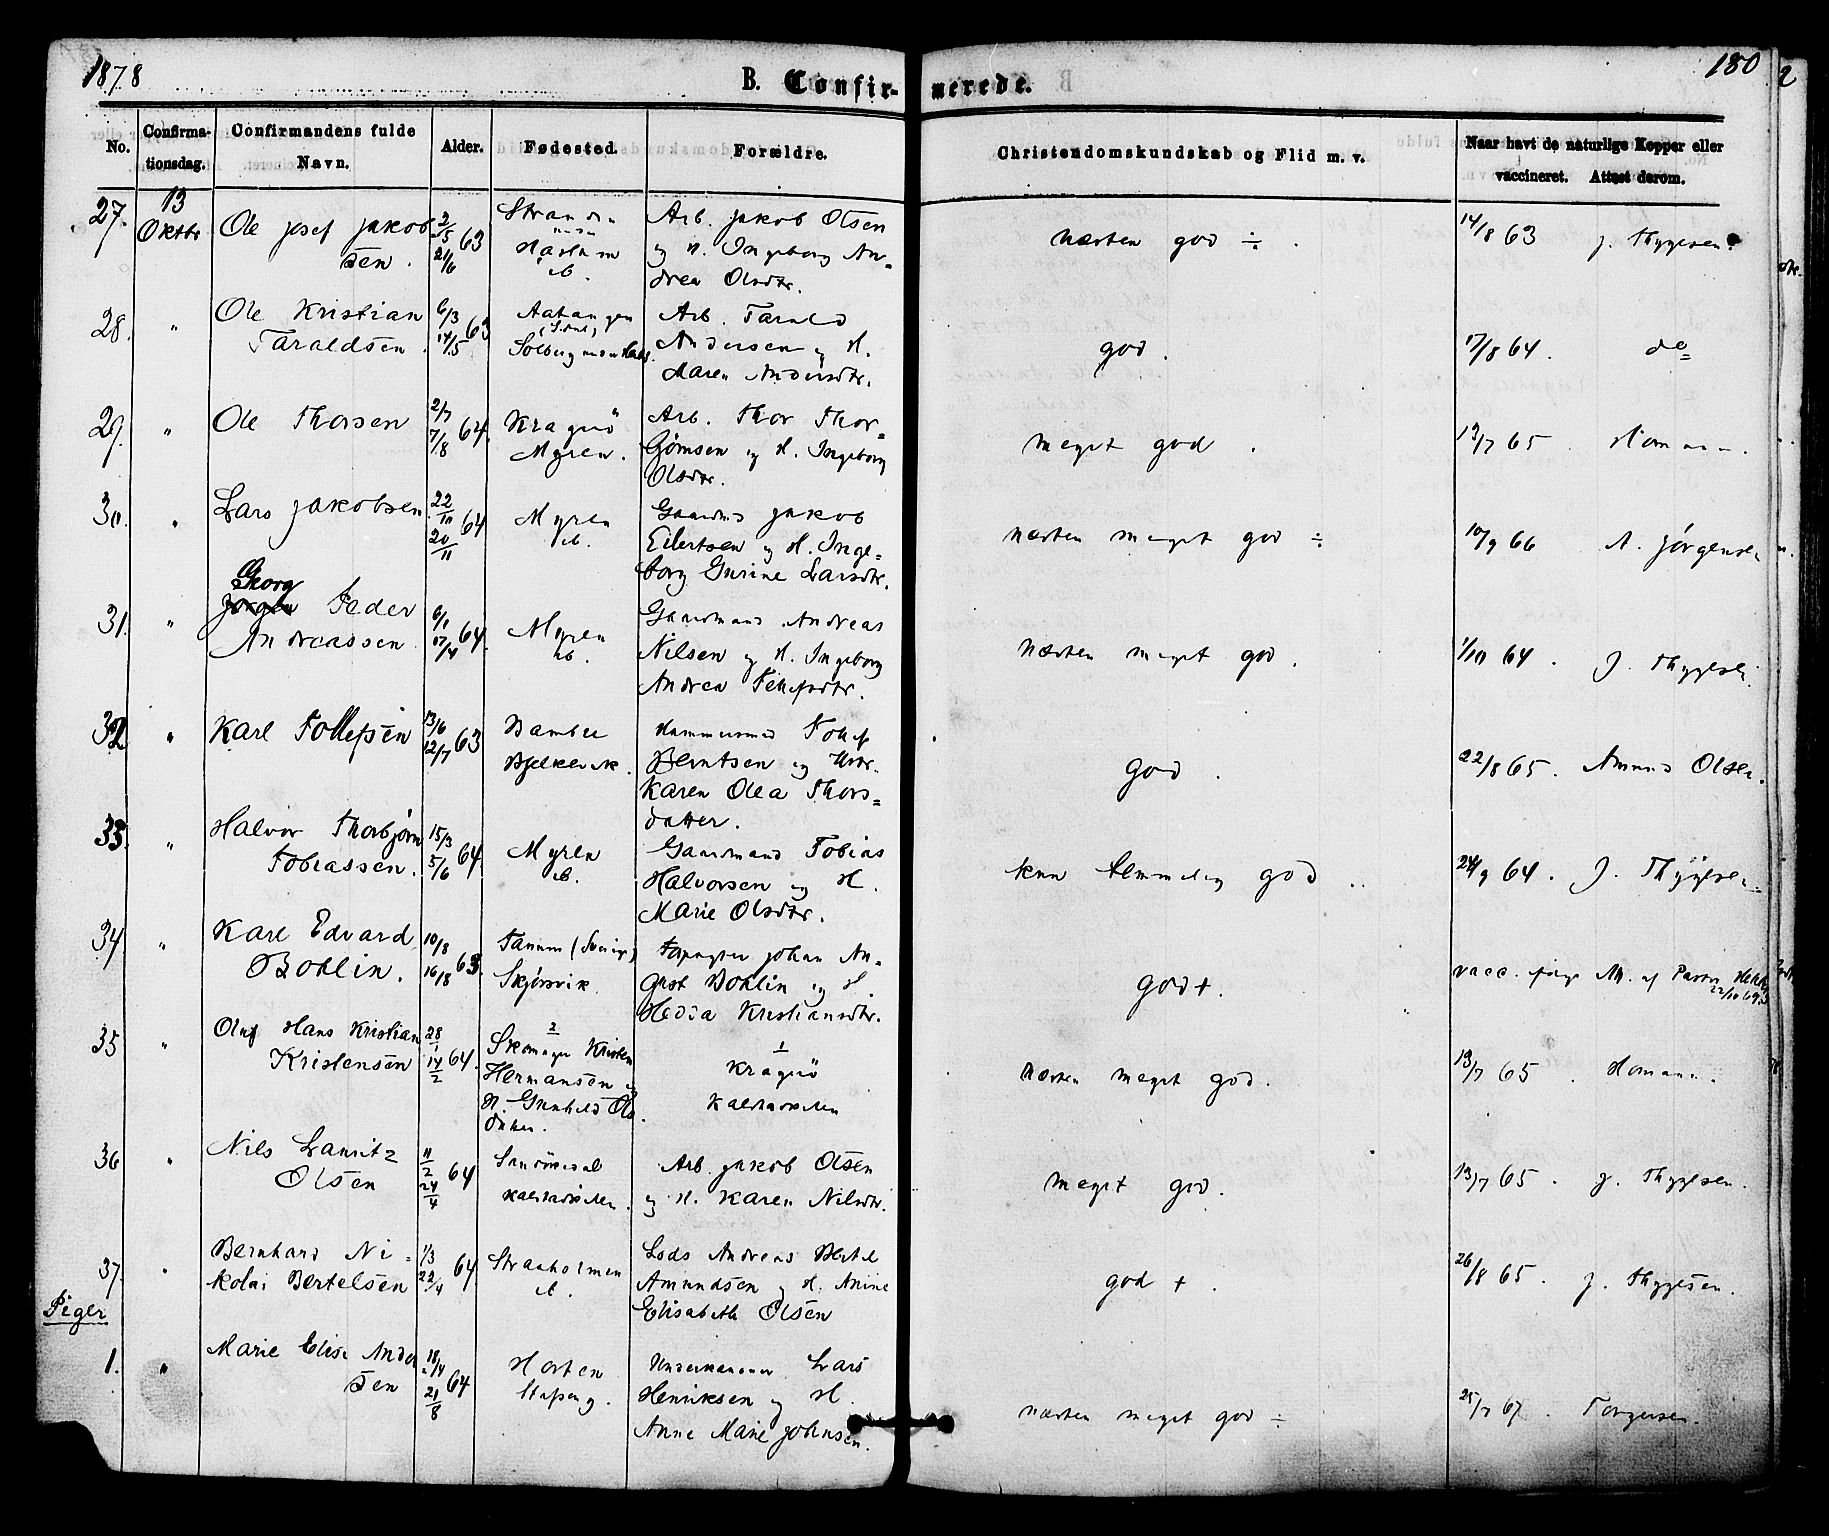 1878
B. Confir-
merede.
180
2
No.
Confirma-
tionsdag.
Confirmandens fulde
Navn.
Alder.
Fødested.
Forældre.
Christendomskundskab og Flid m. v.
Naar havt de naturlige Kopper eller
vaccineret. Attest derom.
27. 13 Oktbr
Ole Josef Jakob
sen.
2/5 21/6 63
Arb. Jakob Olsen
og H. Ingeborg An=
drea Olsdtr.
næsten god ÷.
14/8 63 J. Thygesen.
28. "
Ole Kristian
Taraldsen.
6/3 14/5 63
Arb. Tarald
Andersen og H.
Maren Andersdtr.
god.
17/8 64. do
29. "
Ole Thorsen
2/7 7/8 64.
Kragerø
Myren.
Arb. Thor Thor=
bjørnsen og H. Ingeborg
Olsdtr.
meget god.
13/7 65. Homann.
30. "
Lars Jakobsen
22/10 20/11 64
Myren
ib.
Gaardmd Jakob
Eilertsen og H. Inge=
borg Gurine Larsdtr.
næsten meget god ÷
10/9 66 A. Jørgensen
31. "
Georg
Peder
Andreassen.
6/1 17/4 64.
Myren
ib.
Gaardmand Andreas
Nilsen og H. Ingeborg
Andrea Tellefsdtr.
næsten meget god.
1/10 64. J. Thygesen.
32 "
Karl Tollefsen
13/6 12/7 63
Bamble
Tollef
Berntsen og
Karen Olea Thors=
datter.
god.
22/8 65. Amund Olsen.
33. "
Halvor Thorbjørn
Tobiassen.
15/3 5/6 64
Myren
ib.
Gaardmand Tobias
Halvorsen og H.
Marie Olsdtr.
kun temmelig god..
24/9 64. J. Thygesen
34 "
Karl Edvard
Bohlin.
10/8 16/8 63.
Tanum (Sverige)
Skjørsvik.
Johan Au=
gust Bohlin og H.
Hedda Kristiansdtr.
god+.
vacc. ifølge Att. af Pastor
35 "
Oluf Hans Kristian
Kristensen
28/1 14/2 64.
2
Skomager Kristen
Hermansen og
H. Gunhild Ols
datter.
1
Kragerø
Kalstadkilen
næsten meget god.
13/7 65. Homann.
36 "
Nils Lauritz
Olsen
11/2 24/4 64
Sannidal
Kalstadkilen.
Arb. Jakob Olsen
og H. Karen Nilsdtr.
meget god.
13/7 65. J. Thygesen.
37. "
Bernhard Ni=
kolai Bertelsen
1/3 22/4 64
Straaholmen
ib.
Lods Andreas Bertel
Amundsen og H. Anine
Elisabeth Olsen
god +.
26/8 65. J. Thygesen.
Piger
1. "
Marie Elise Ander
sen
18/4 21/8 64
Horten
Lars
Henriksen og H.
Anne Marie Johnsen.
næsten meget god ÷
25/7 67. Torgersen.